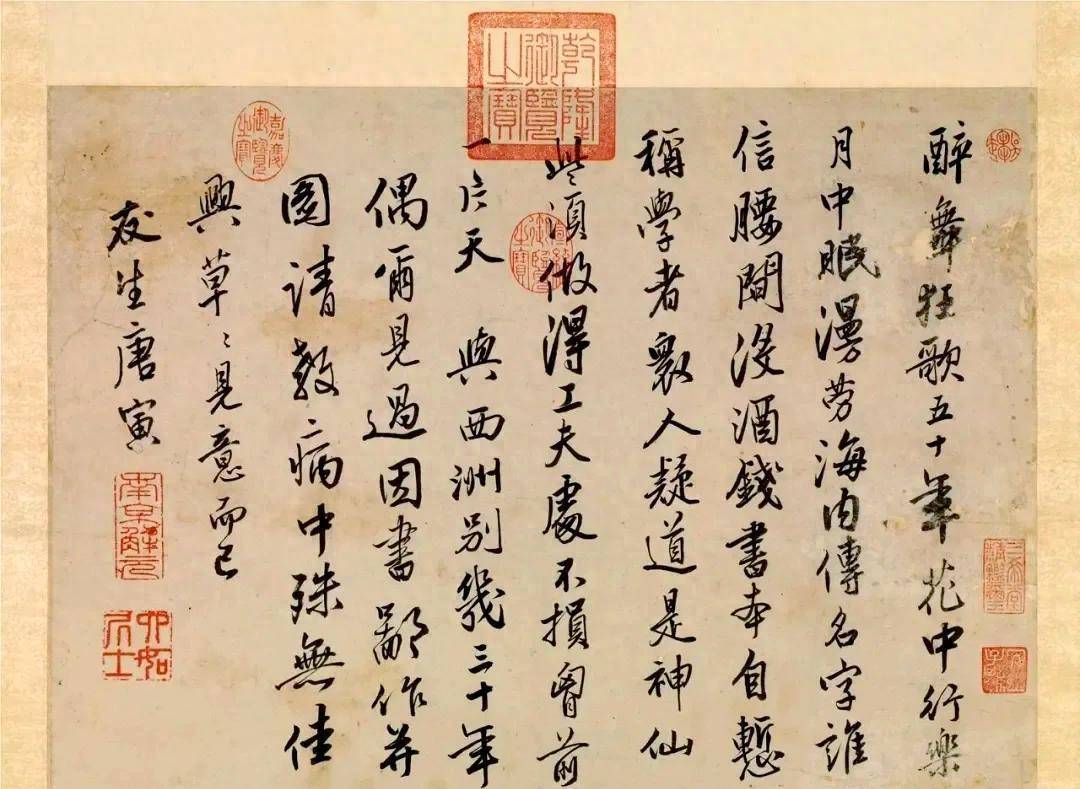 吳趨
醉舞狂歌五十年花中行樂
三希堂精鑑璽
宜子孫
月中眠漫勞海內傳名字誰
信腰間沒酒錢書本自慙
稱學者衆人疑道是神仙
乾隆御覽之寶
些須做得工夫處不損胷前
宣統御覽之寶
一片天 與西洲別幾三十年
偶爾見過因書鄙作并
圖請教病中殊無佳
嘉慶御覽之寶
興草〻見意而已
友生唐寅
南京解元
六如居士